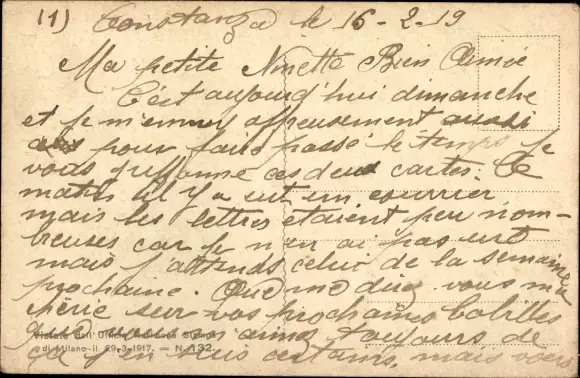 (1) Constanza le 16-2-19
Ma petite Ninette Bien Aimée
C'est aujourd'hui dimanche
et je m'ennuy affreusement aussi
pour faire passé le temps je
vous griffonne ces deux cartes. Ce
matin il y a eut un courrier
mais les lettres etaient peu nom-
breuses car je n'en ai pas eut
mais j'attends celui de la semaine
prochaine. Que me direz vous ma
cherie sur vos prochaines
que vous m'aimez toujours de
j'en suis certains, mais vous
di Milano il 29-3-1917. - N. 132.